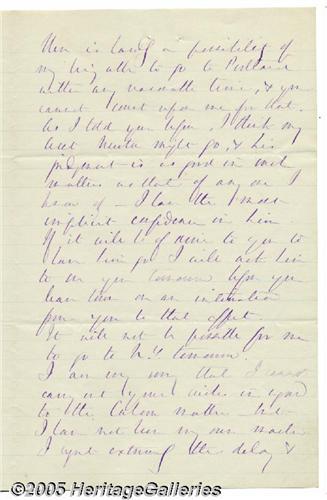 There is barely a possibility of
my being able to go to Portland
within any reasonable time, & you
cannot count upon me for that.
As I told you before, I think my
might go, & his
judgment is as good in such
matters as that of any one I
know of – I have the most
implicit confidence in him
If it will be of service to you to
have him go I will ask him
to see you tomorrow before you
leave town on an intimation
from you to that effect.
It will not be possible for me
to go to N.Y. tomorrow.
I am very sorry that I cannot
carry out your wishes in regard
to the matter – but
I have not been my own master
I regret extremely the delay &
©2005 HeritageGalleries